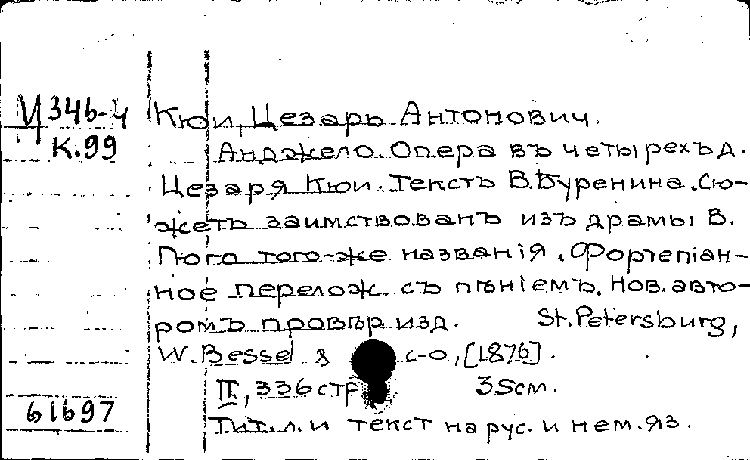 Ц346-4 Кюи, Цезарь Антонович.
К.99 Анджело. Опера въ четырехъ д.
Цезаря Кюи. Текстъ В. Буренина. Сю-
жетъ заимствованъ изъ драмы В.
Гюго того-же названія. Фортепіан-
ное перелож. съ пѣніемъ. Нов. авто-
ромъ провѣр изд. St. Petersburg,
W. Bessel & с-о, [1876].
II, 336 стр 35см.
61697 Тит. л. и текст на рус. и нем. яз.